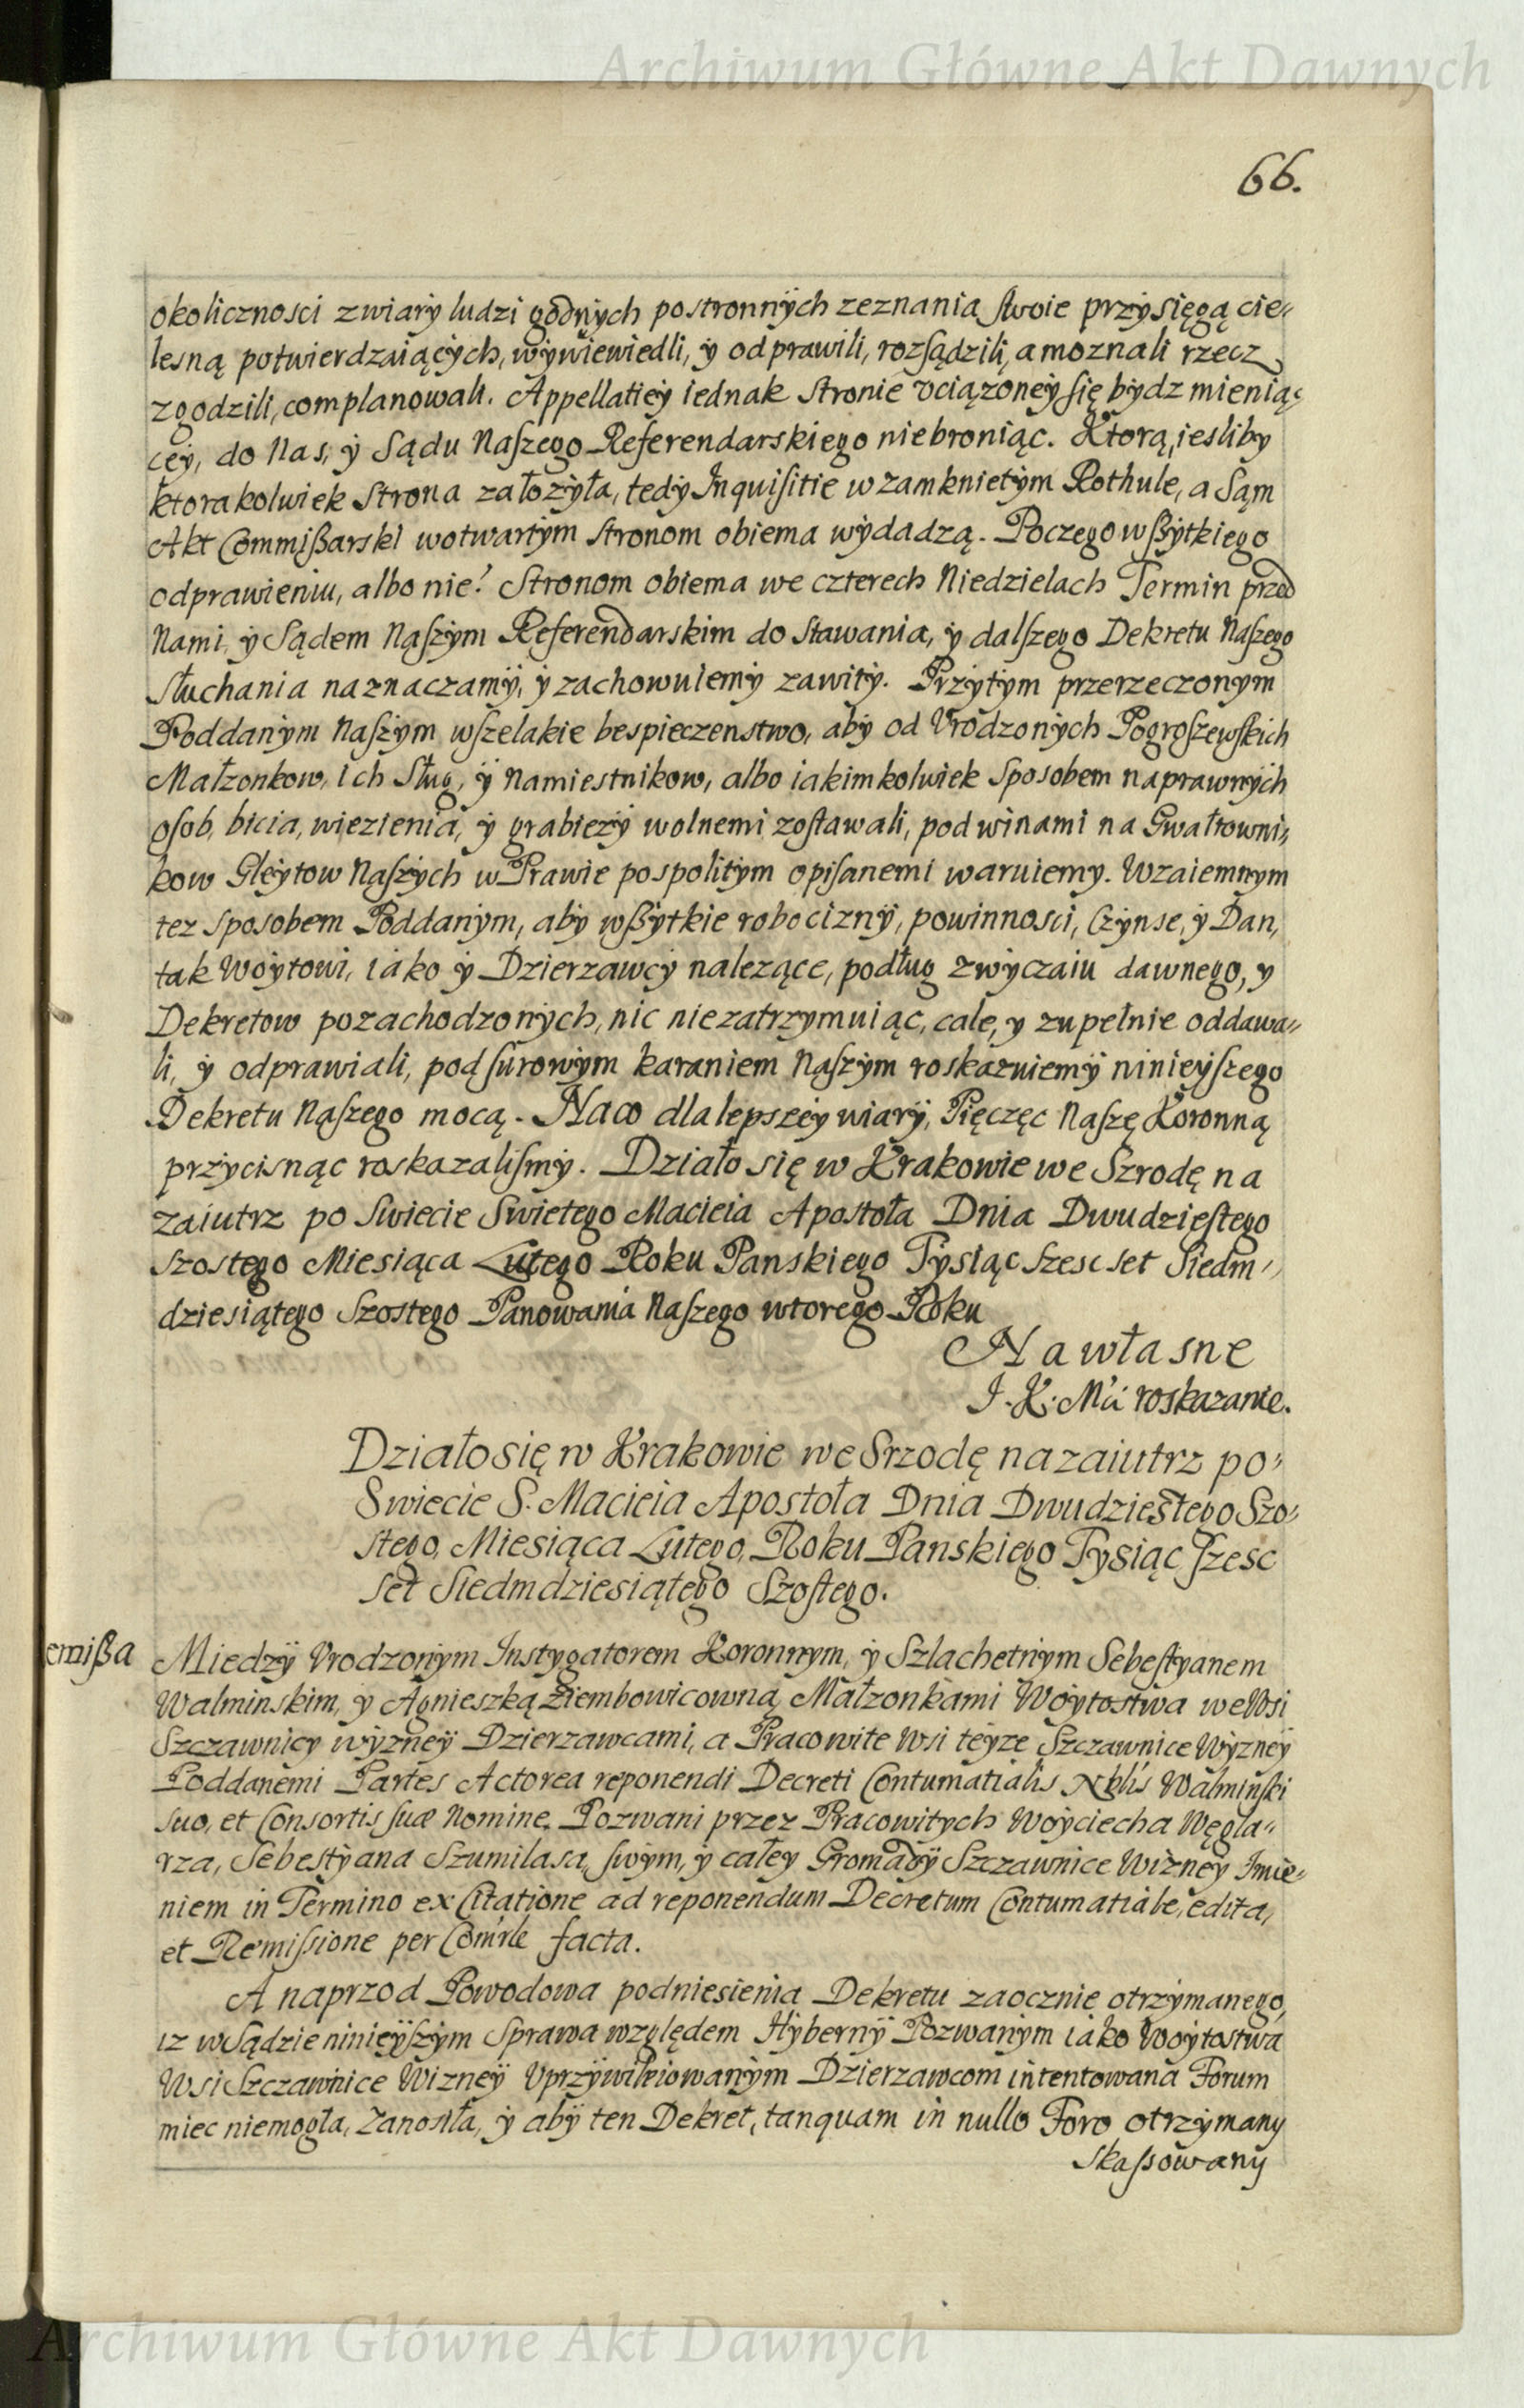 Archiwum Główne Akt Dawnych
66.
okolicznosci zwiary ludzi godnych postronnÿch zeznania swoie przysięgą cie„
lesną potwierdzaiących, wywiewiedli, y odprawili, rozsądzili, a moznali rzecz
zgodzili, complanowali. Appellatiey iednak stronie vciązoney się bydz mienią„
cey, do Nas, y Sądu Naszego Referendarskiego niebroniąc. Ktorą, iesliby
ktorakolwiek strona załozyła, tedy Inquisitie w zamknietym Rothule, a Sąm
Akt Commißarski wotwartym stronom obiema wydadzą. Poczego wßytkiego
odprawieniu, albo nie? Stronom obiema we czterech Niedzielach Termin przed
Nami, y Sądem Naszym Referendarskim do stawania, y dalszego Dekretu Naszego
słuchania naznaczamÿ, y zachowuiemy zawity. Przytym przerzeczonym
Poddanym Naszym wszelakie bespieczenstwo, aby od Vrodzonych Pogroszewskich
Małzonkow, ich Sług, ÿ Namiestnikow, albo iakimkolwiek sposobem naprawnÿch
osob, bicia, wiezienia, ÿ grabiezy wolnemi zostawali, pod winami na Gwałtowni„
kow Gleytow Naszych w Prawie pospolitym opisanemi waruiemy. Wzaiemnym
tez sposobem Poddanym, aby wßytkie robociznÿ, powinnosci, Czynse, y Dan,
tak Woytowi, iako y Dzierzawcy nalezące, podług zwyczaiu dawnego, y
Dekretow pozachodzonych, nic niezatrzymuiąc, cale, y zupełnie oddawa„
li, y odprawiali, pod surowym karaniem Naszym roskazuiemÿ ninieyszego
Dekretu Naszego mocą. Naco dla lepszey wiarÿ, Pięczęc Naszę Koronną
przycisnąc roskazalismy. Działo się w Krakowie we Szrodę na
zaiutrz po Swiecie Swietego Macieia Apostoła Dnia Dwudziestego
szostego Miesiąca Lutego Roku Panskiego Tysiąc szesc set Siedm„
dziesiątego Szostego Panowania Naszego wtorego Roku
Na własne
J. K. Mći roskazanie.
Działo się w Krakowie we Srzodę nazaiutrz po„
Swiecie S. Macieia Apostoła Dnia Dwudziestego Szo„
stego, Miesiąca Lutego, Roku Panskiego Tysiąc szesc
set Siedmdziesiątego Szostego.
emißa
Miedzÿ Vrodzonym Instygatorem Koronnym, y Szlachetnym Sebestyanem
Walminskim, y Agnieszką Ziembowicowną Małzonkami Woytostwa we Wsi
Szczawnicy wyzneÿ Dzierzawcami, a Pracowite Wsi teyze Szczawnice Wyzneÿ
Poddanemi Partes Actorea reponendi Decreti Contumatialis Nblis Walminski
suo, et Consortis suæ Nomine. Pozwani przez Pracowitych Woyciecha Węgla„
rza, Sebestyana Szumilasa, swym, y całey Gromadÿ Szczawnice Wizney Imie„
niem in Termino ex Citatione ad reponendum Decretum Contumatiale, edita,
et Remissione per Comrle facta.
A naprzod Powodowa podniesienia Dekretu zaocznie otrzymanego,
iz w Sądzie ninieÿszym Sprawa względem Hÿbernÿ Pozwanym iako Woytostwa
Wsi Szczawnice Wizneÿ Vprzÿwileiowanym Dzierzawcom intentowana Forum
miec niemogła, zanosiła, y abÿ ten Dekret, tanquam in nullo Foro otrzymany
skassowany
Archiwum Główne Akt Dawnych